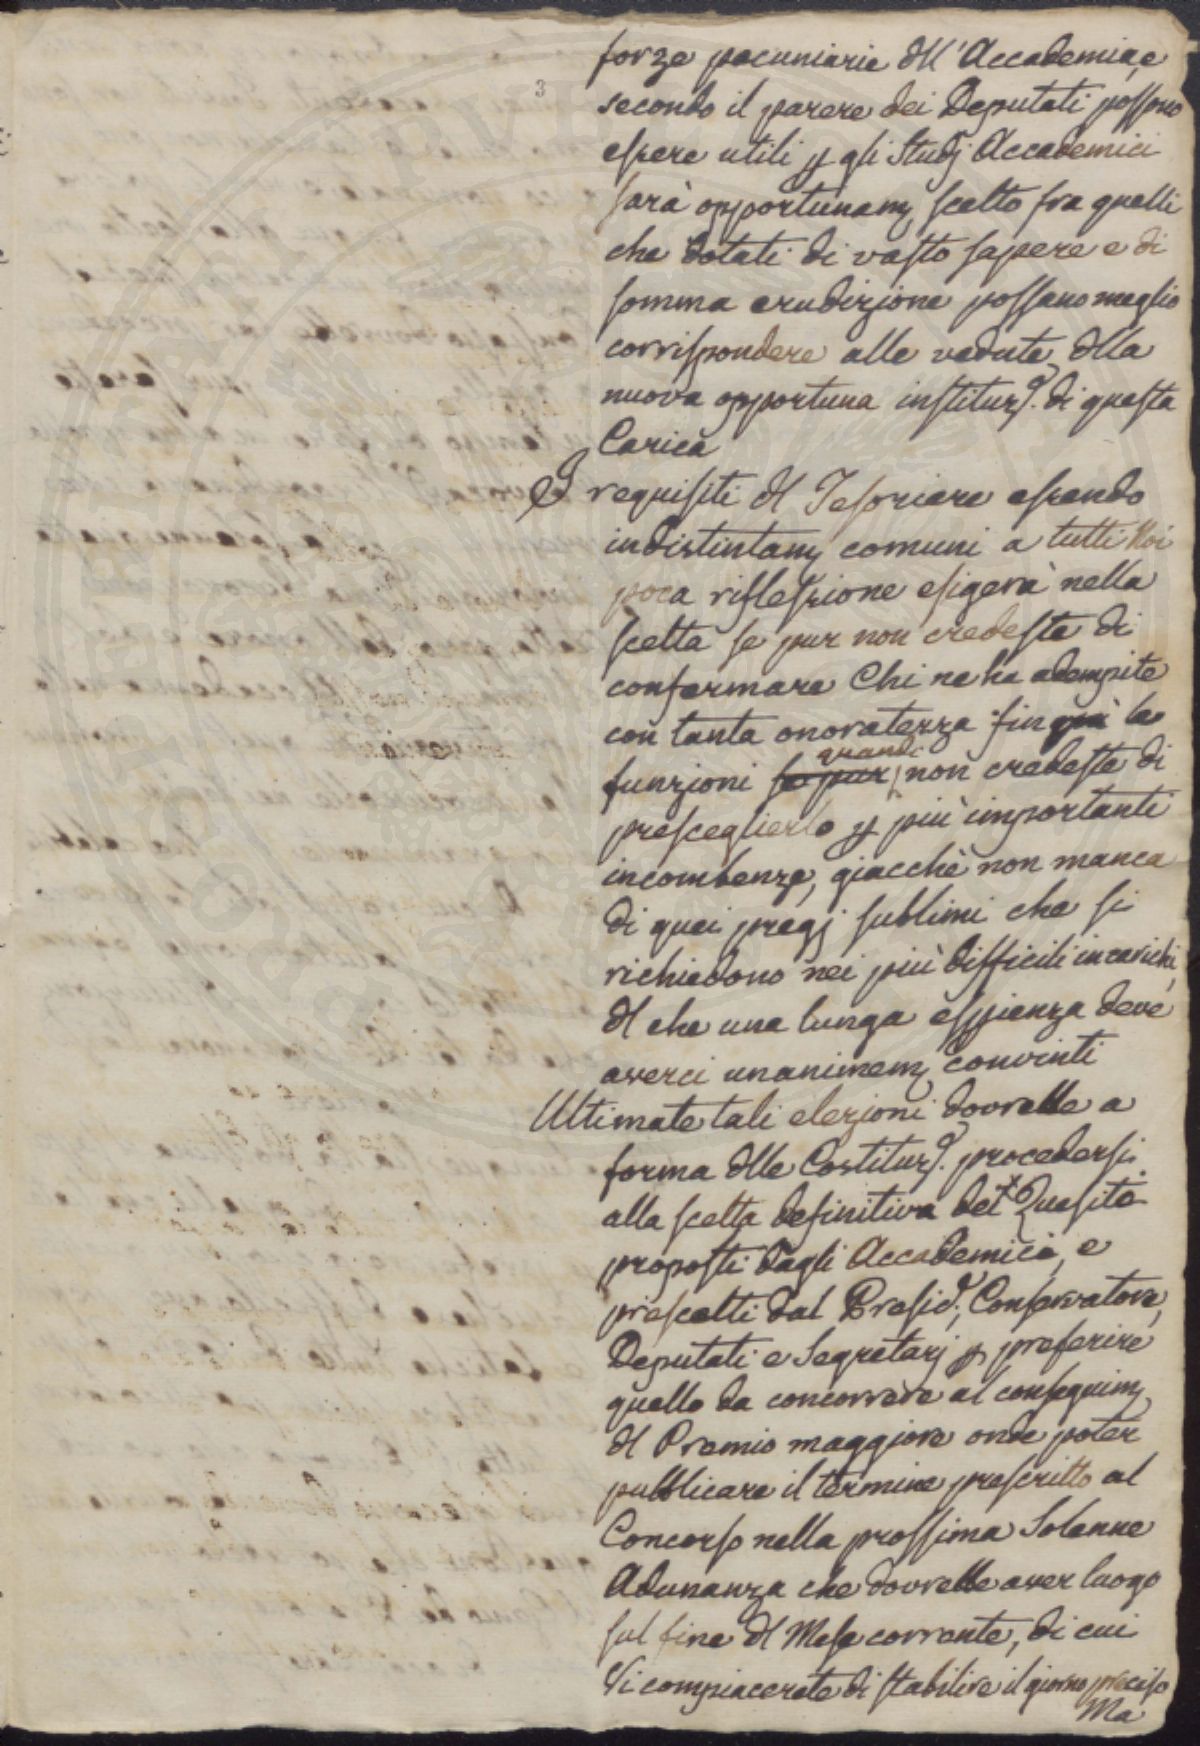 3
forze pecuniarie dll'Accademia, e
secondo il parere dei Deputati possono
essere utili p gli Studj Accademici
sarà opportunam scelto fra quelli
che dotati di vasto sapere e di
somma erudizione possano meglio
corrispondere alle vedute dlla
nuova opportuna instituze. di questa
Carica
I requisiti dl Tesoriere essendo
indistintam comuni a tutti Noi
poca riflessione esigerà nella
scelta se pur non credeste di
confermare Chi ne ha adempite
con tanta onoratezza fin quì le
quando
funzioni se pur non credeste di
presceglierlo p più importanti
incombenze, giacchè non manca
di quei pregj sublimi che si
richiedono nei più difficili incarichi,
dl che una lunga esppienza deve
averci unanimem convinti
Ultimate tali elezioni dovrebbe a
forma dlle Costituze. procedersi
alla scelta definitiva del Quesito
proposti dagli Accademici, e
prescelti dal Preside., Conservatore,
Deputati e Segretarj p preferire
quello da concorrere al conseguim
dl Premio maggiore onde poter
pubblicare il termine prescritto al
Concorso nella prossima Solenne
Adunanza che dovrebbe aver luogo
sul fine dl Mese corrente, di cui
Vi compiacerete di stabilire il giorno preciso
Ma